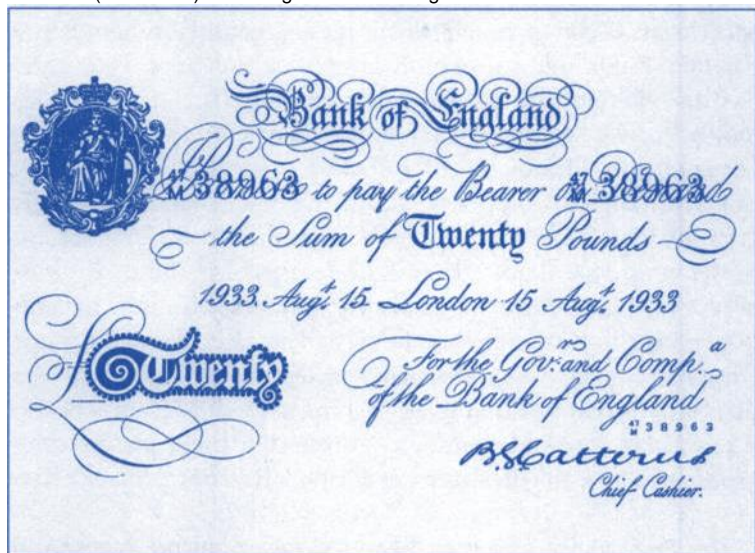 Bank of England
47/M 38963 to pay the Bearer on Demand 47/M 38963
the Sum of Twenty Pounds
1933 Augt. 15 London 15 Augt. 1933
Twenty
For the Govr. and Compa.
of the Bank of England
47/M 38963
B G Catterns
Chief Cashier.